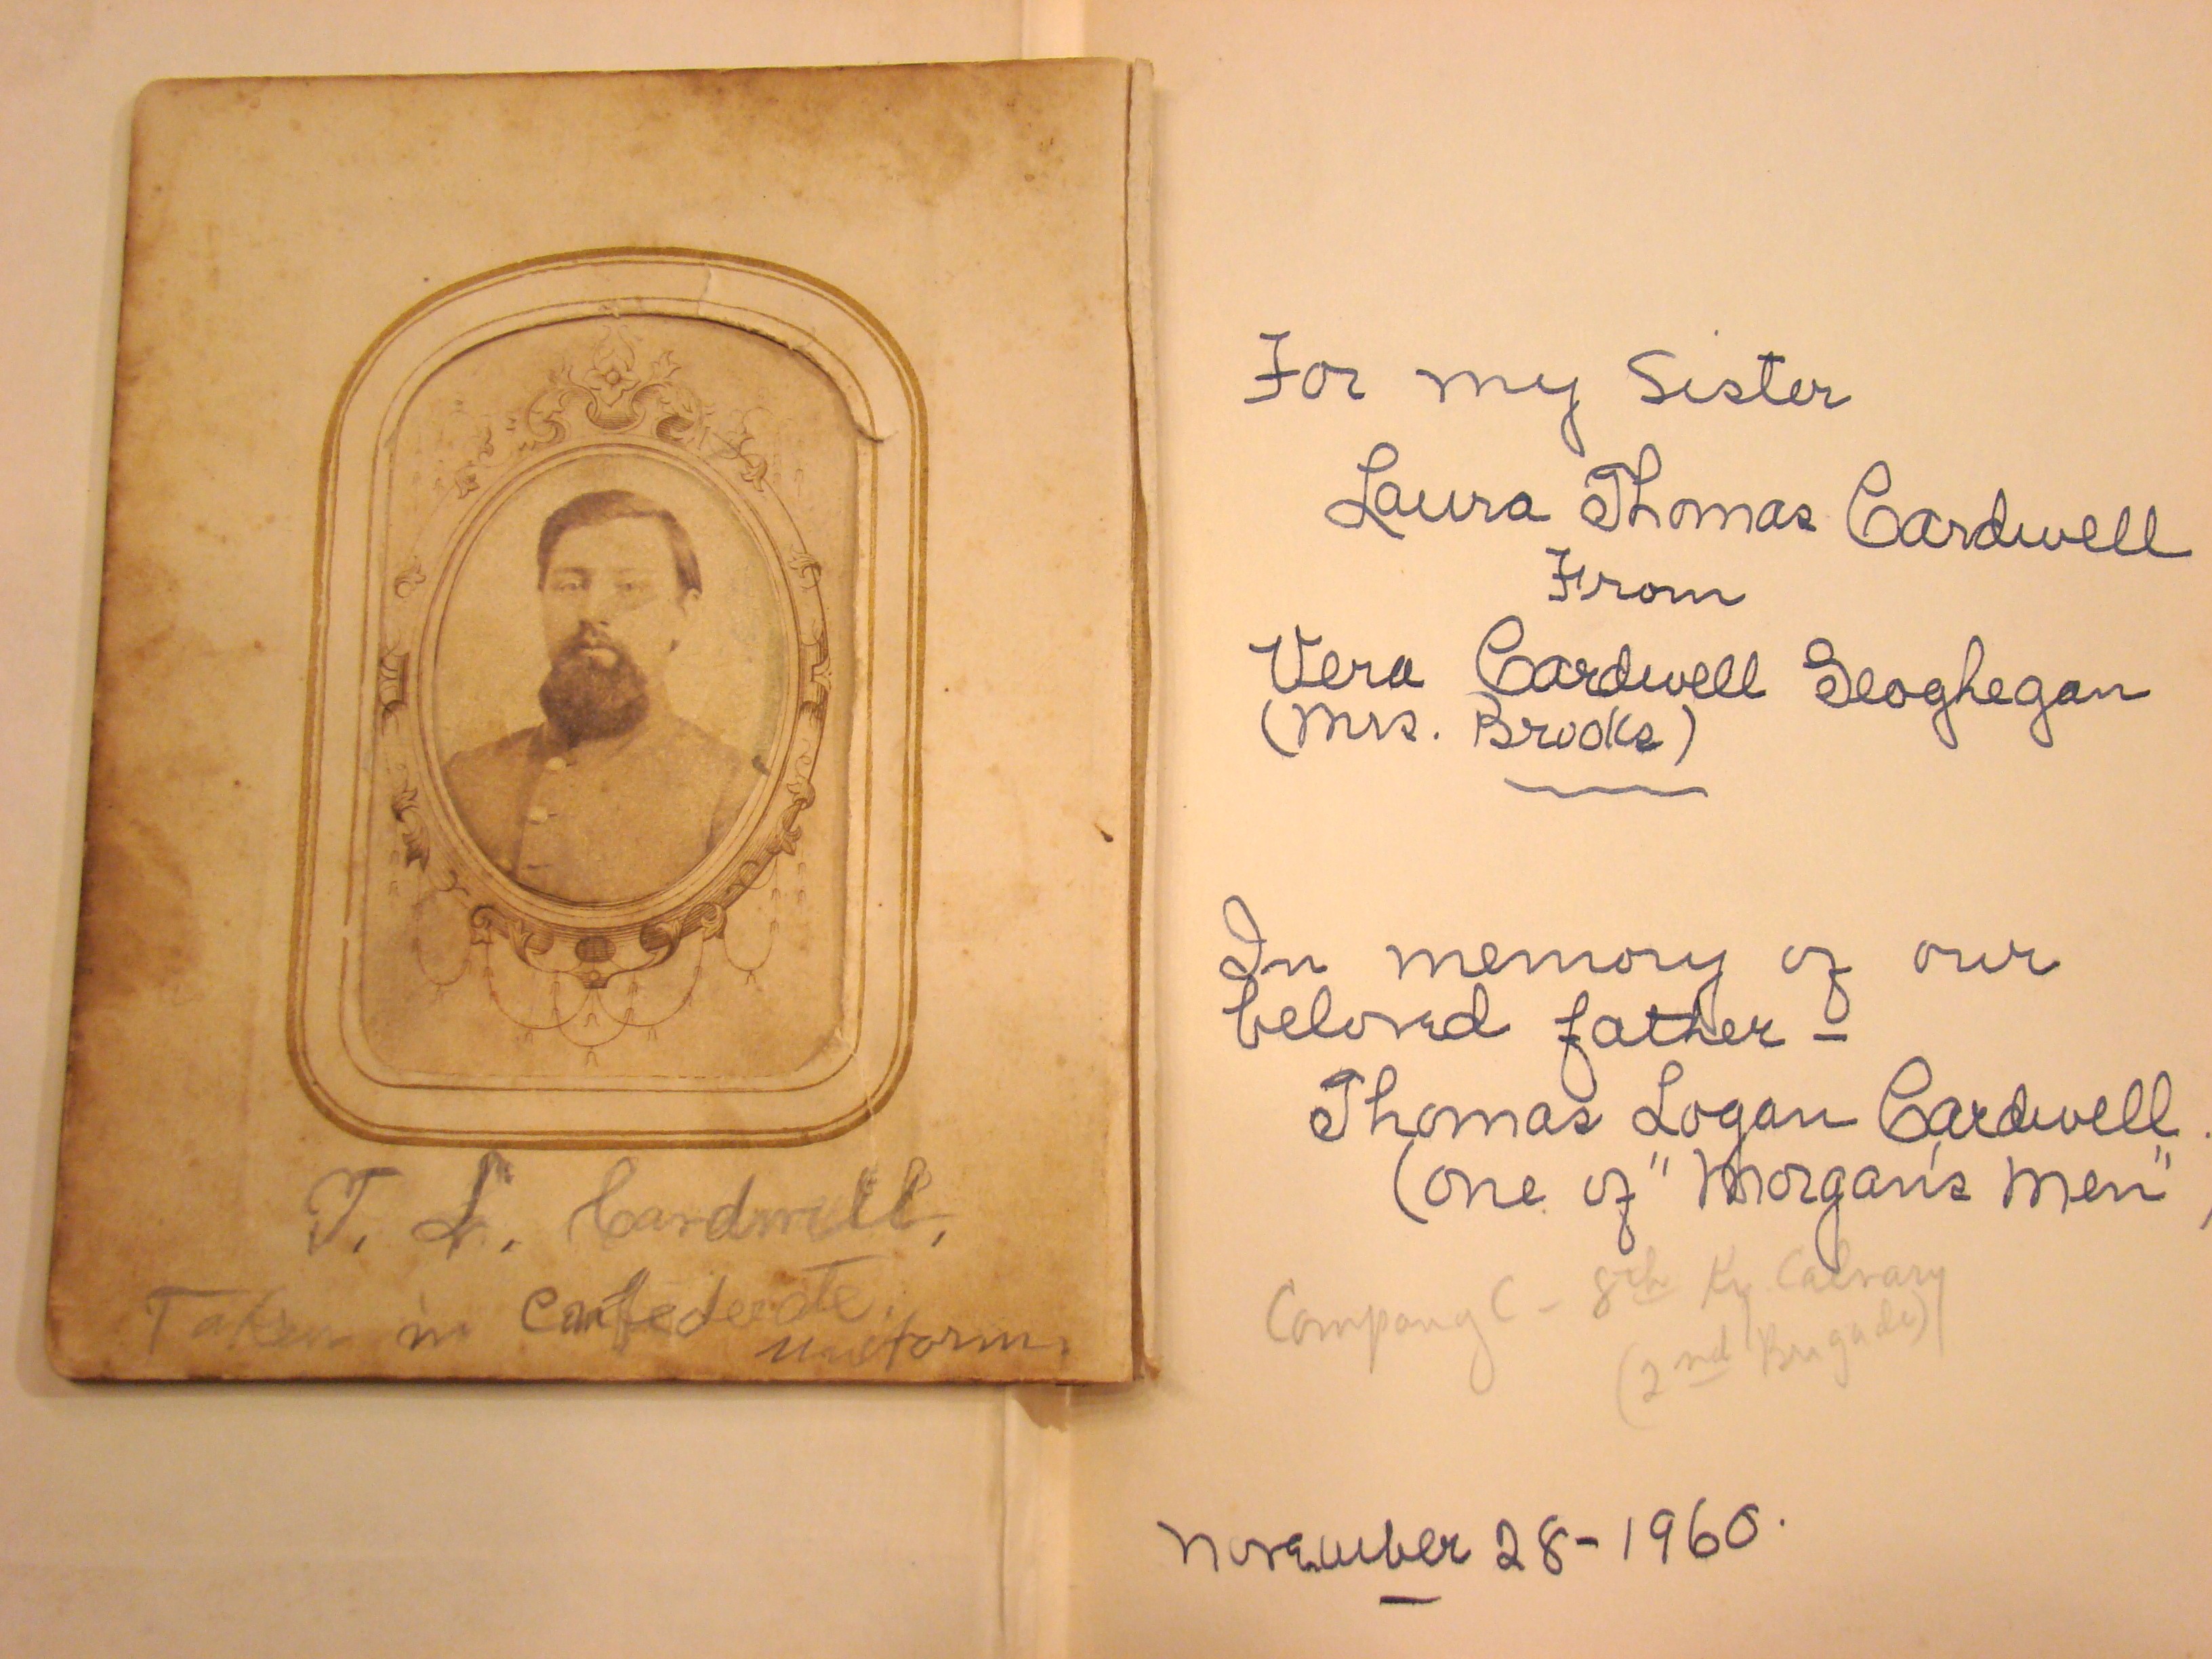 T. L. Cardwell,
Taken in Confederate
uniform.
For my Sister
Laura Thomas Cardwell
From
Vera Cardwell Geoghegan
(Mrs. Brooks)
In memory of our
beloved father -
Thomas Logan Cardwell.
(one of "Morgan's Men")
Company C - 8th Ky. Calvary
(2nd Brigade)
November 28 - 1960.